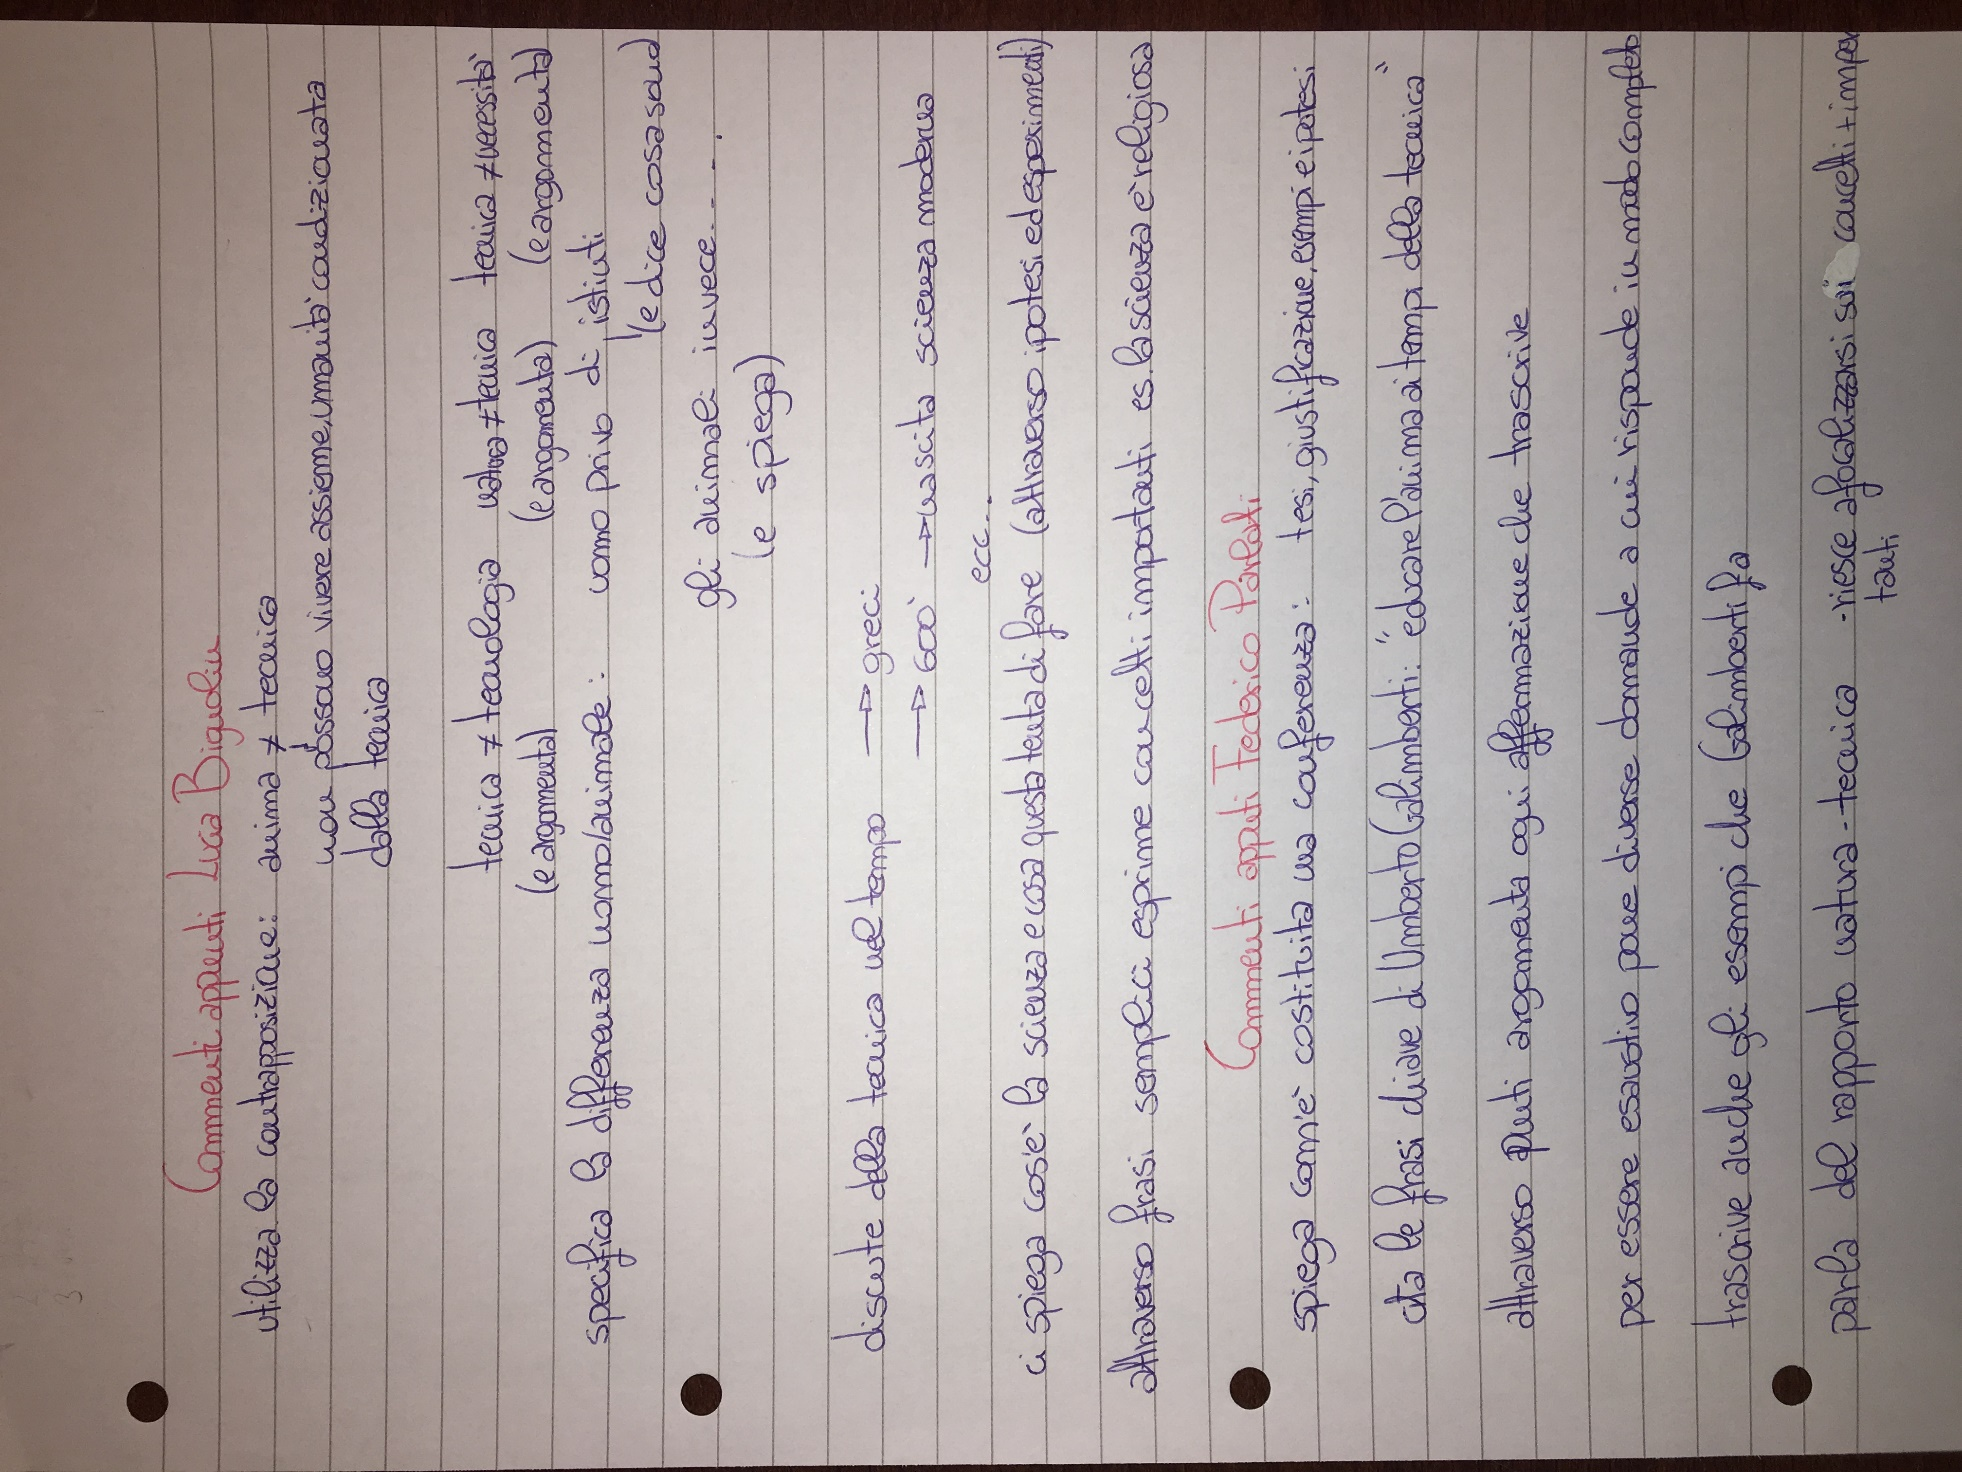 Commenti appunti Luca Bignolin
utilizza la contrapposizione: anima ≠ tecnica
non possono vivere assieme, umanità condizionata
dalla tecnica
tecnica ≠ tecnologia natura ≠ tecnica tecnica ≠ necessità
(e argomenta) (e argomenta) (e argomenta)
specifica la differenza uomo/animale: uomo privo di istinti
(e dice cosa sono)
gli animali invece....
(e spiega)
discute della tecnica nel tempo → greci
→ 600 → nascita scienza moderna
ecc...
ci spiega cos'è la scienza e cosa questa tenta di fare (attraverso ipotesi ed esperimenti)
attraverso frasi semplici esprime concetti importanti es. la scienza è religiosa
Commenti appunti Federico Parlati
spiega com'è costituita una conferenza: tesi, giustificazione, esempi e ipotesi
cita le frasi chiave di Umberto Galimberti: "educare l'anima ai tempi della tecnica"
attraverso punti argomenta ogni affermazione che trascrive
per essere esaustivo pone diverse domande a cui risponde in modo completo
trascrive anche gli esempi che Galimberti fa
parla del rapporto natura-tecnica - riesce a focalizzarsi sui concetti + impor
tanti